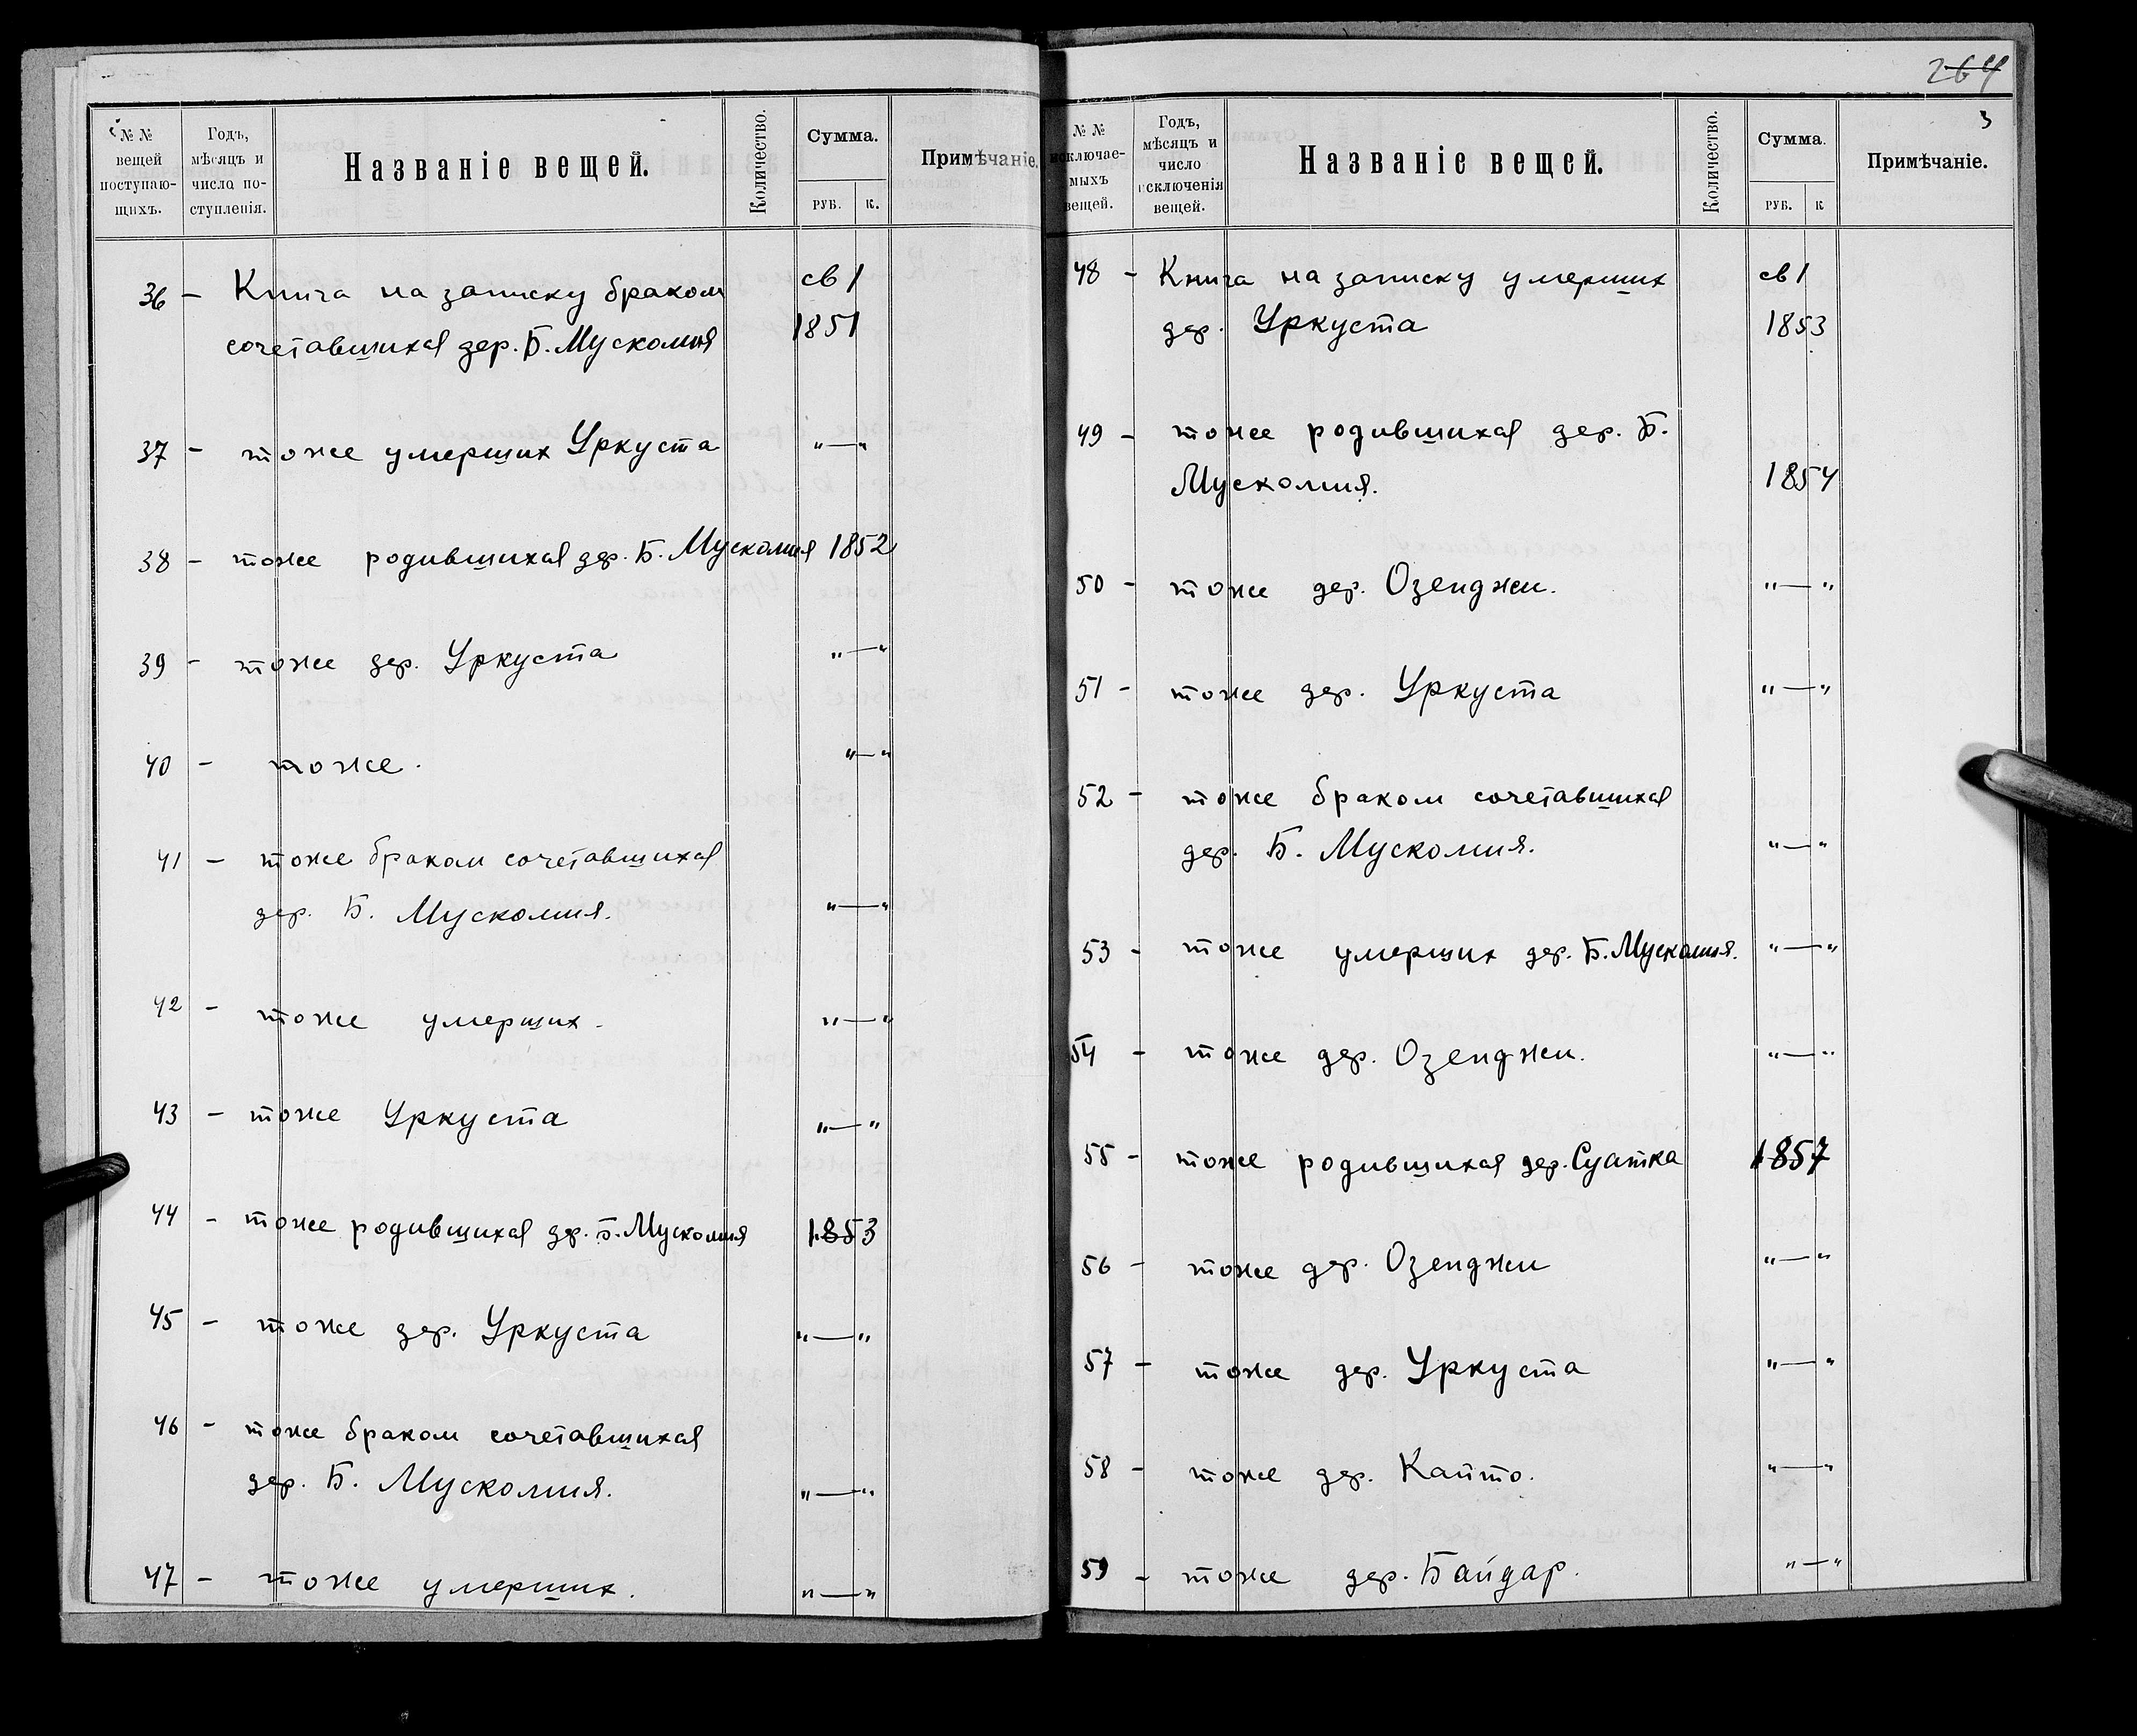 № № вещей поступаю-щихъ.
Годъ, мѣсяцъ и число по-ступленія.
Названіе вещей.
Количество.
Сумма.
РУБ. К.
Примѣчаніе.
36 - Книга на записку браком св 1
сочетавшихся дер. Б. Мускомия 1851
37 - тоже умерших Уркуста "—"
38 - тоже родившихся дер. Б. Мускомия 1852
39 - тоже дер. Уркуста "—"
40 - тоже. "—"
41 - тоже браком сочетавшихся
дер. Б. Мускомия. "—"
42 - тоже умерших. "—"
43 - тоже Уркуста "—"
44 - тоже родившихся др. Б. Мускомия 1853
45 - тоже дер. Уркуста "—"
46 - тоже браком сочетавшихся
дер. Б. Мускомия. "—"
47 - тоже умерших. "—"
264
3
№ № исключае-мыхъ вещей.
Годъ, мѣсяцъ и число исключенія вещей.
Названіе вещей.
Количество.
Сумма.
РУБ. К
Примѣчаніе.
48 - Книга на записку умерших св 1
дер. Уркуста 1853
49 - тоже родившихся дер. Б.
Мускомия. 1854
50 - тоже дер. Озенджи. "—"
51 - тоже дер. Уркуста "—"
52 - тоже браком сочетавшихся
дер. Б. Мускомия. "—"
53 - тоже умерших дер. Б. Мускомия. "—"
54 - тоже дер. Озенджи. "—"
55 - тоже родившихся дер. Суатка 1857
56 - тоже дер. Озенджи "—"
57 - тоже дер. Уркуста "—"
58 - тоже дер. Кайто. "—"
59 - тоже дер. Байдар. "—"